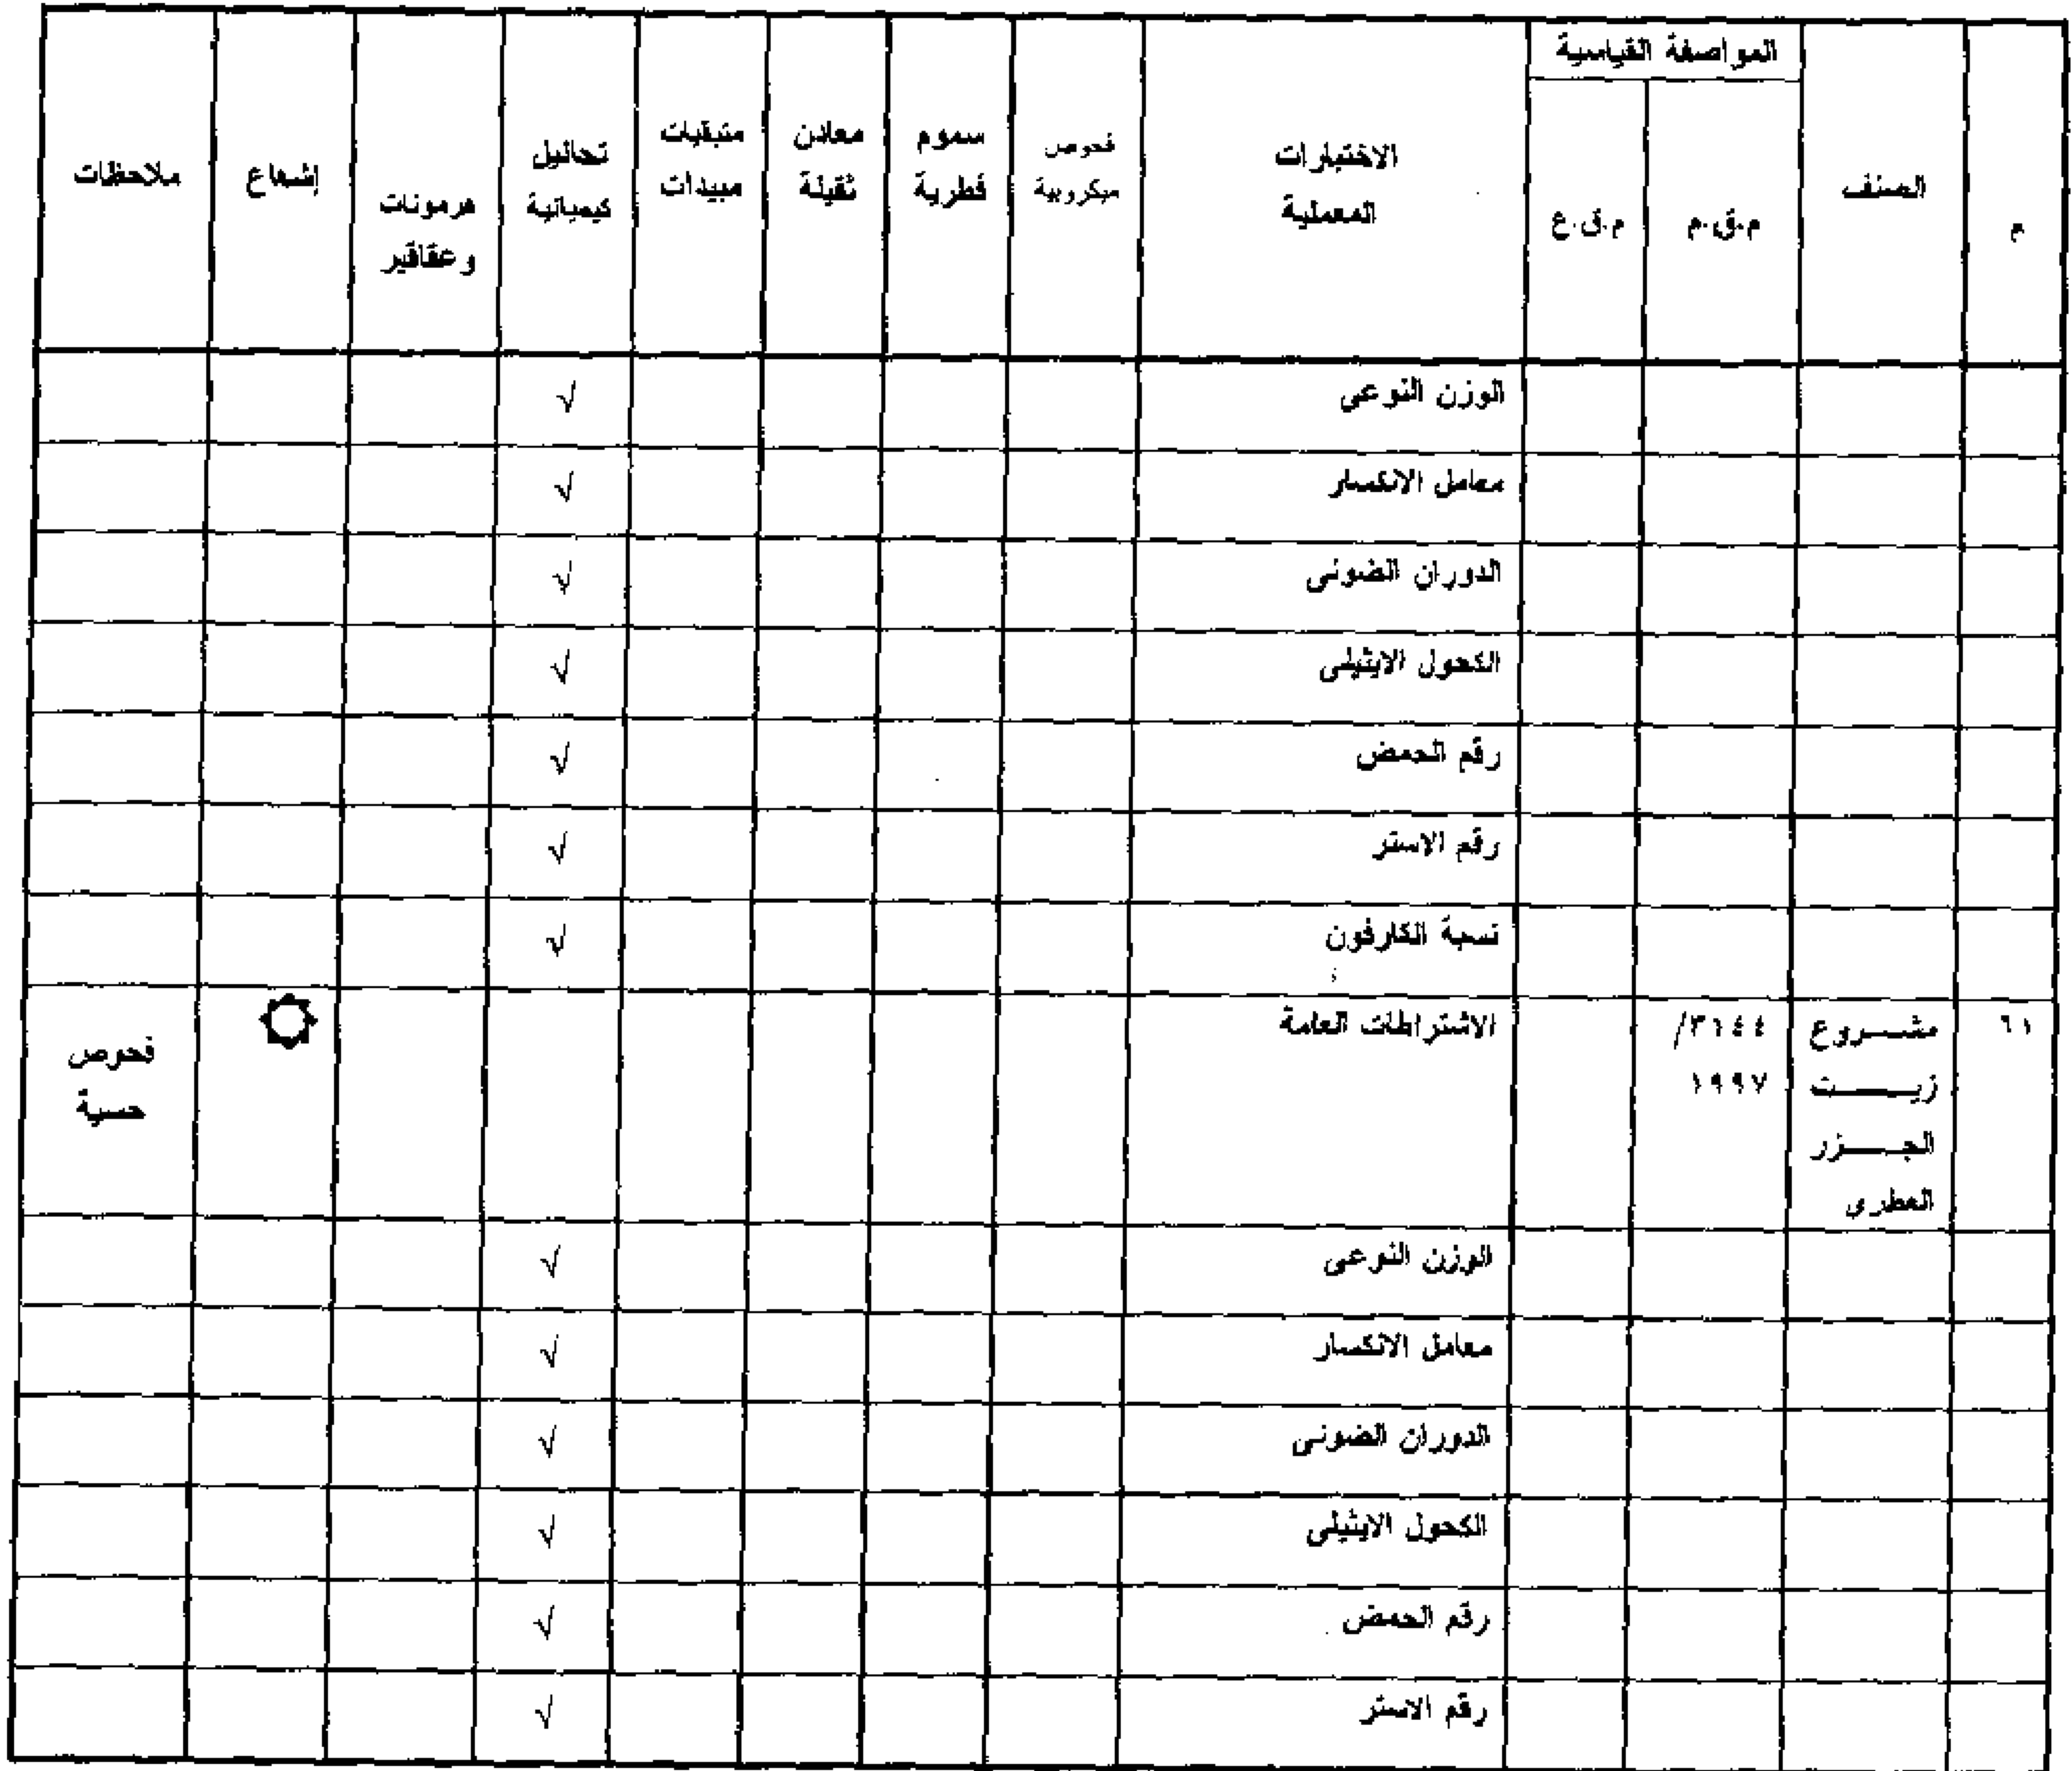 م
الصنف
المواصفة القياسية
م.ق.م
م.ق.ع
الاختبارات
المعملية
فحوص
ميكروبية
سموم
فطرية
معادن
ثقيلة
متبقيات
مبيدات
تحاليل
كيميائية
هرمونات
وعقاقير
إشعاع
ملاحظات
الوزن النوعى √
معامل الانكسار √
الدوران الضوئى √
الكحول الايثيلى √
رقم الحمض √
رقم الاستر √
نسبة الكارفون √
٦١
مشروع
زيت
الجزر
العطرى
٣١٤٤/
١٩٩٧
الاشتراطات العامة
فحوص
حسية
الوزن النوعى √
معامل الانكسار √
الدوران الضوئى √
الكحول الايثيلى √
رقم الحمض √
رقم الاستر √